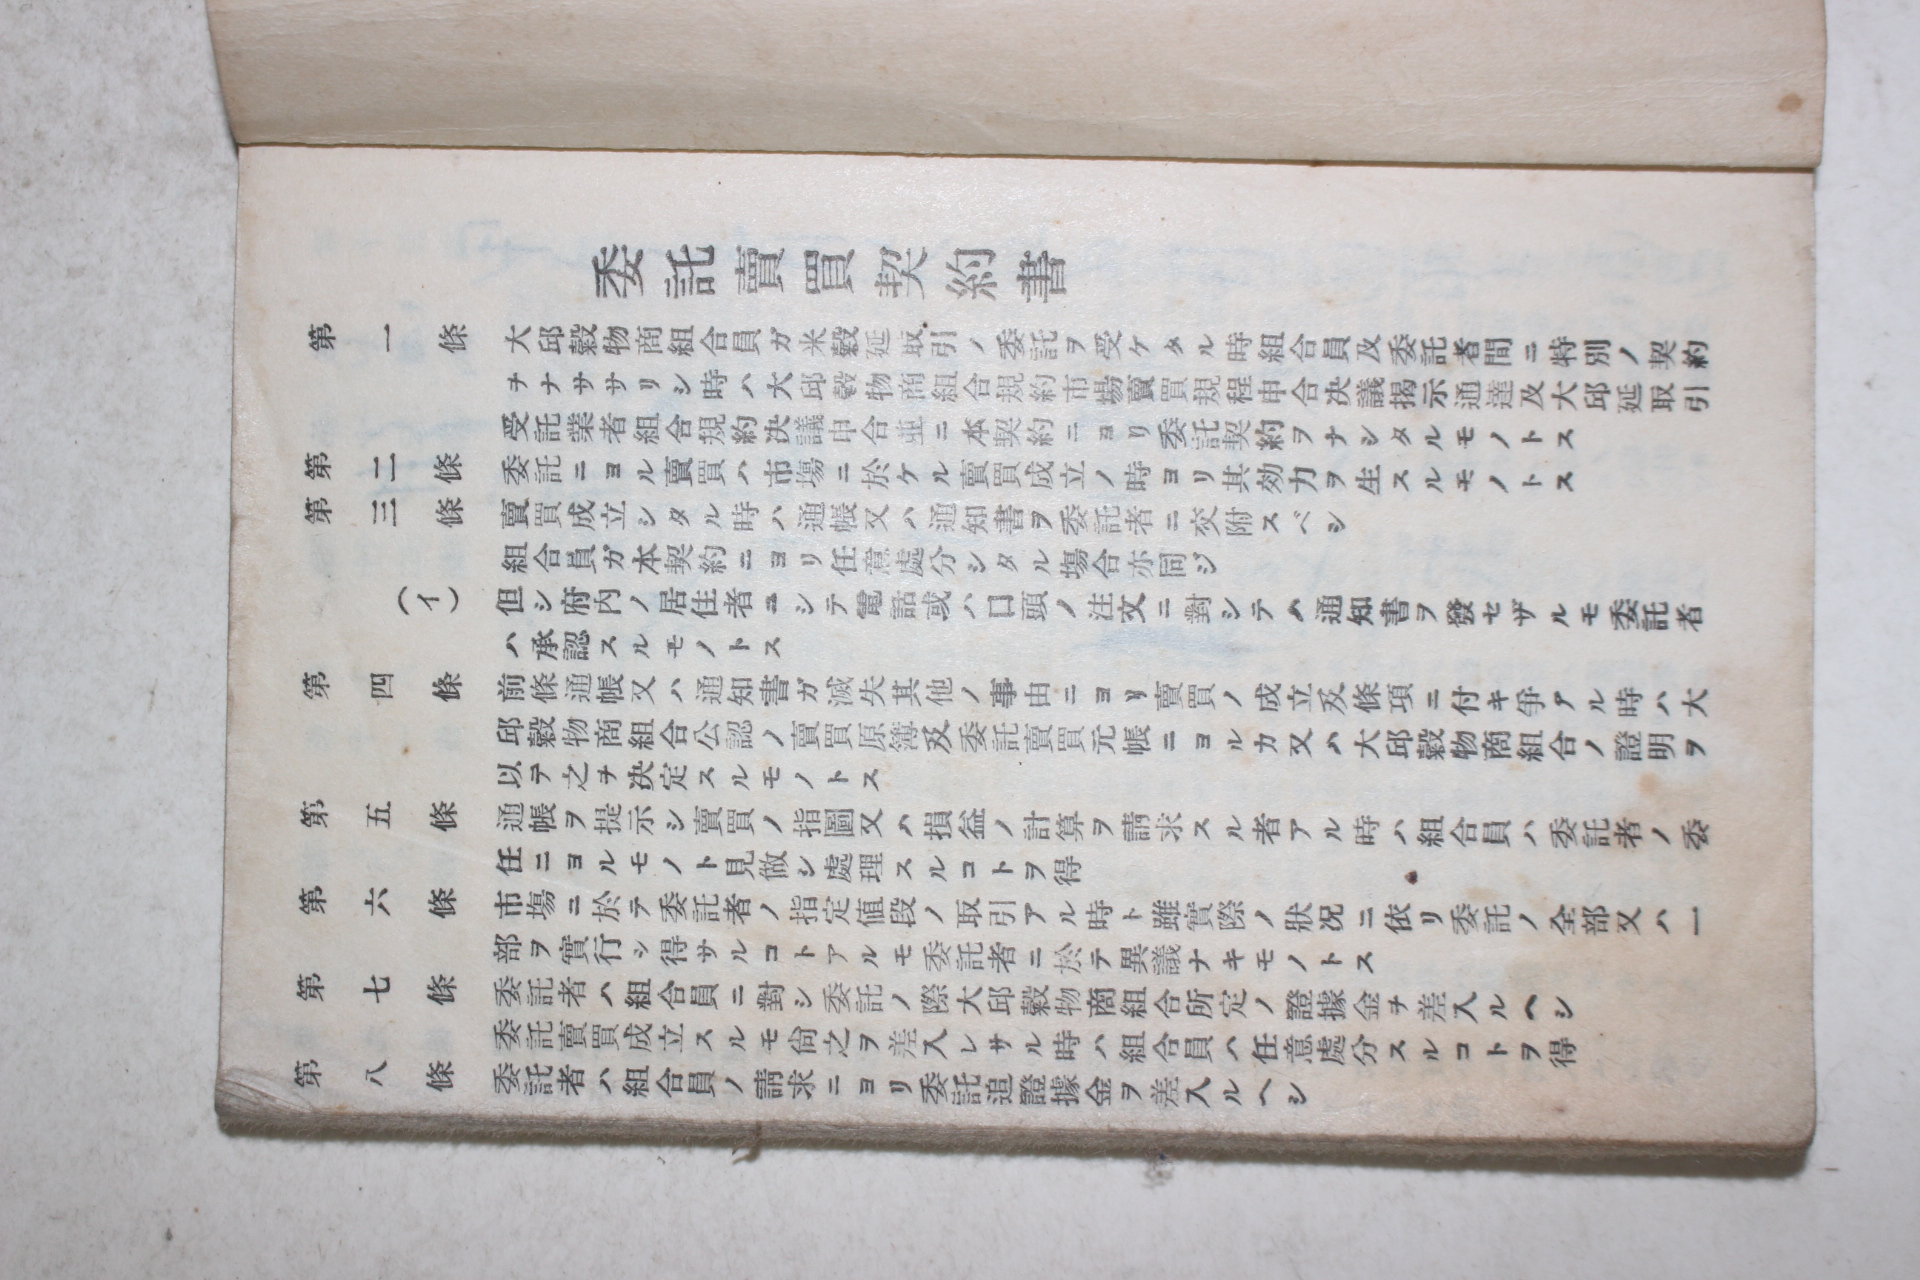 委託賣買契約書
第一條 大邱穀物商組合員ガ米穀延取引ノ委託ヲ受ケタル時組合員及委託者間ニ特別ノ契約
チナササリシ時ハ大邱穀物商組合規約市場賣買規程申合決議揭示通達及大邱延取引
受託業者組合規約決議申合並ニ本契約ニヨリ委託契約ヲナシタルモノトス
第二條 委託ニヨル賣買ハ市塲ニ於ケル賣買成立ノ時ヨリ其効力ヲ生スルモノトス
第三條 賣買成立シタル時ハ通帳又ハ通知書ヲ委託者ニ交附スベシ
組合員ガ本契約ニヨリ任意處分シタル塲合亦同ジ
(イ) 但シ府內ノ居住者ニシテ電話或ハ口頭ノ注文ニ對シテハ通知書ヲ發セザルモ委託者
ハ承認スルモノトス
第四條 前條通帳又ハ通知書ガ滅失其他ノ事由ニヨリ賣買ノ成立及條項ニ付キ爭アル時ハ大
邱穀物商組合公認ノ賣買原簿及委託賣買元帳ニヨルカ又ハ大邱穀物商組合ノ證明ヲ
以テ之チ決定スルモノトス
第五條 通帳ヲ提示シ賣買ノ指圖又ハ損益ノ計算ヲ請求スル者アル時ハ組合員ハ委託者ノ委
任ニヨルモノト見做シ處理スルコトヲ得
第六條 市塲ニ於テ委託者ノ指定値段ノ取引アル時ト雖實際ノ狀况ニ依リ委託ノ全部又ハ一
部ヲ實行シ得サルコトアルモ委託者ニ於テ異議ナキモノトス
第七條 委託者ハ組合員ニ對シ委託ノ際大邱穀物商組合所定ノ證據金チ差入ルヘシ
委託賣買成立スルモ尙之ヲ差入レサル時ハ組合員ハ任意處分スルコトヲ得
第八條 委託者ハ組合員ノ請求ニヨリ委託追證據金ヲ差入ルヘシ